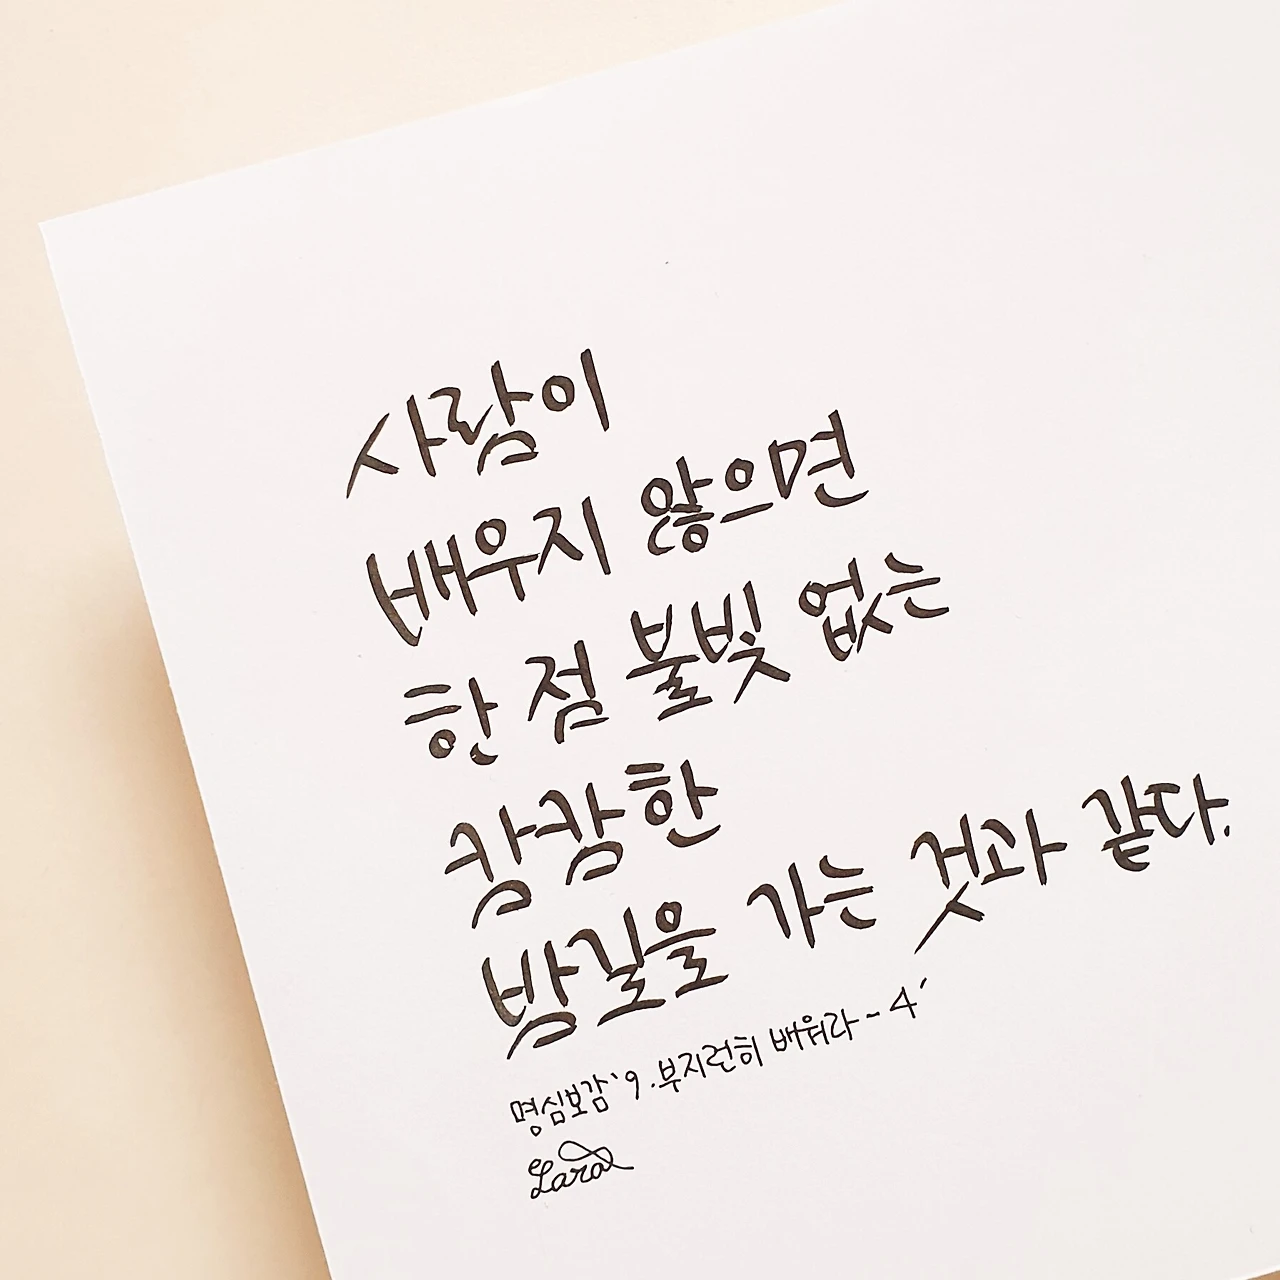 사람이
배우지 않으면
한 점 불빛 없는
캄캄한
밤길을 가는 것과 같다.
명심보감 '9. 부지런히 배워라 - 4'
Lara